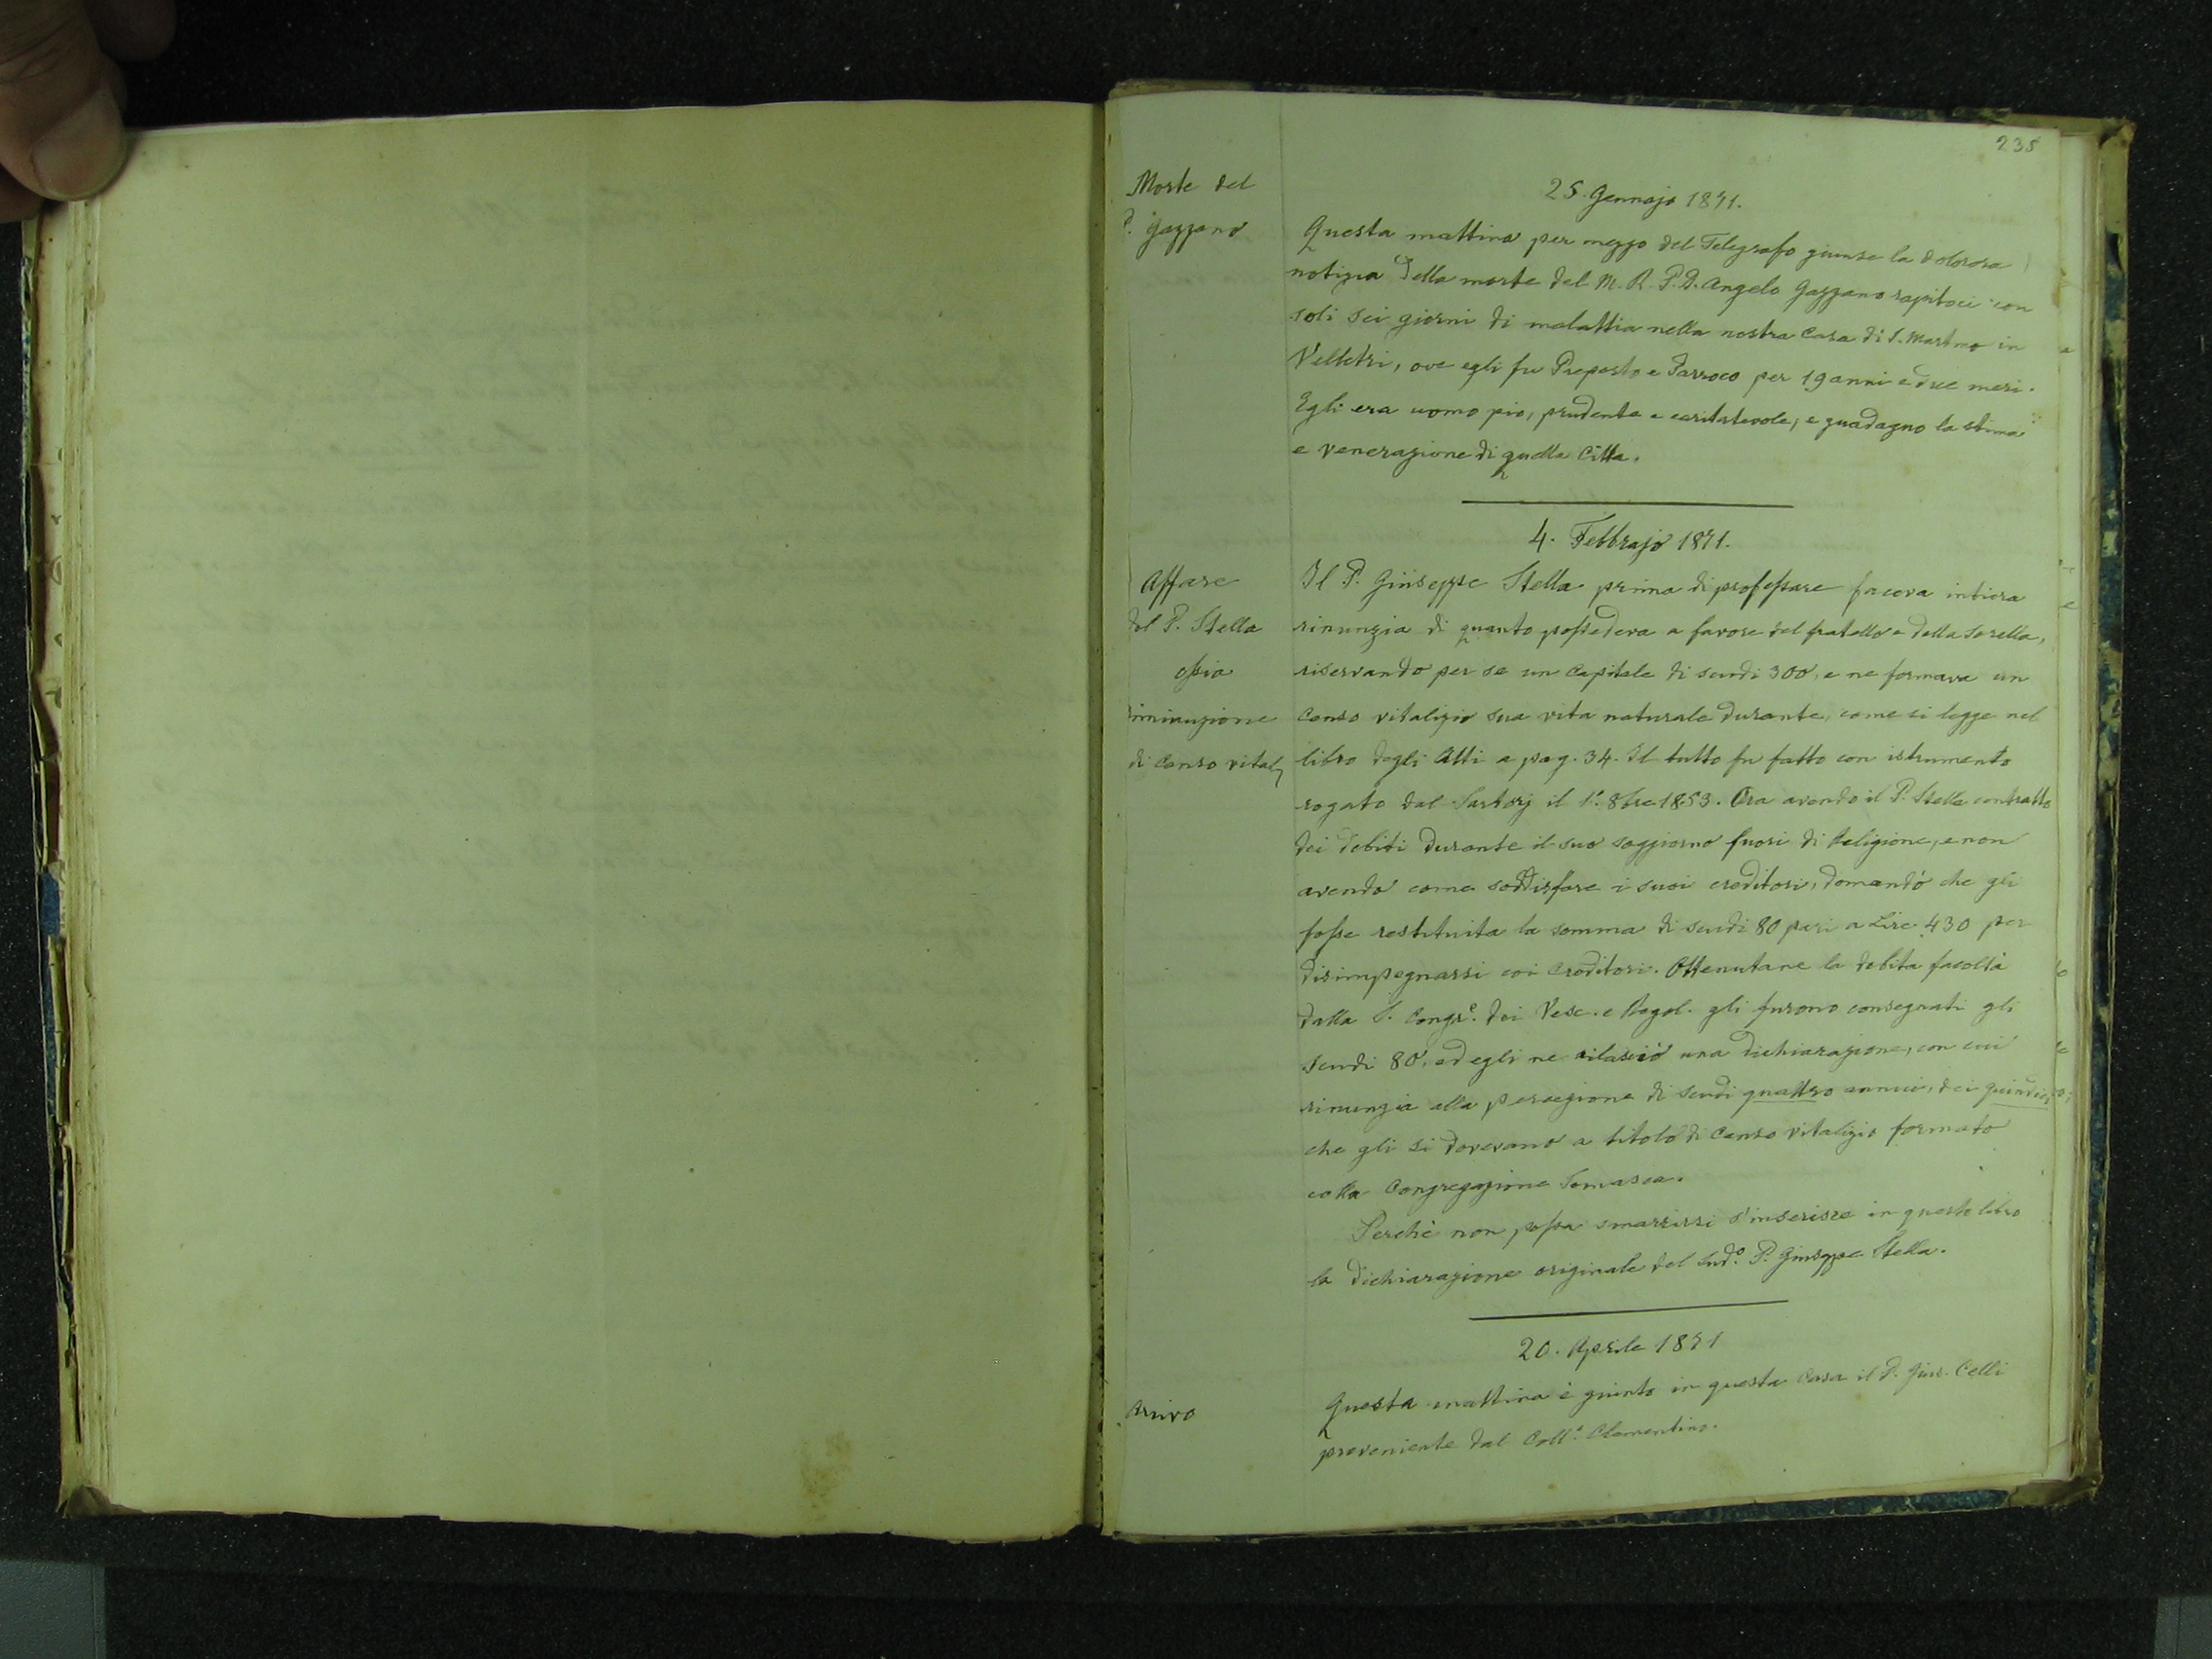 235
Morte del
P. Gazzano
25. Gennajo 1871.
Questa mattina per mezzo del Telegrafo giunse la dolorosa
notizia della morte del M. R. P. D. Angelo Gazzano rapitoci con
soli sei giorni di malattia nella nostra Casa di S. Martino in
Velletri, ove egli fu Preposto e Parroco per 19 anni e due mesi.
Egli era uomo pio, prudente e caritatevole, e guadagno la stima
e venerazione di quella Citta.
4. Febbrajo 1871.
Affare
del P. Stella
ossia
diminuzione
di Censo vital
Il P. Giuseppe Stella prima di professare faceva intiera
rinunzia di quanto possedeva a favore del fratello e della sorella,
riservando per se un Capitale di scudi 300, e ne formava un
Censo vitalizio sua vita naturale durante, come si legge nel
libro degli Atti a pag. 34. Il tutto fu fatto con istrumento
rogato dal Sartorj il 1° 8bre 1853. Ora avendo il P. Stella contratto
dei debiti durante il suo soggiorno fuori di Religione, e non
avendo come soddisfare i suoi creditori, domandò che gli
fosse restituita la somma di scudi 80 pari a Lire 430 per
disimpegnarsi coi Creditori. Ottenutane la debita facoltà
dalla S. Congre. dei Vesc. e Regol. gli furono consegnati gli
scudi 80, ed egli ne rilasciò una dichiarazione, con cui
rinunzia alla percezione di scudi quattro annui, dei quindici
che gli si dovevano a titolo di Censo vitalizio formato
colla Congregazione Somasca.
Perchè non possa smarrirsi s'inserisce in questo libro
la dichiarazione originale del sudo. P. Giuseppe Stella.
20. Aprile 1871
Arrivo
Questa mattina è giunto in questa Casa il P. Gius. Celli
proveniente dal Coll°. Clementino.